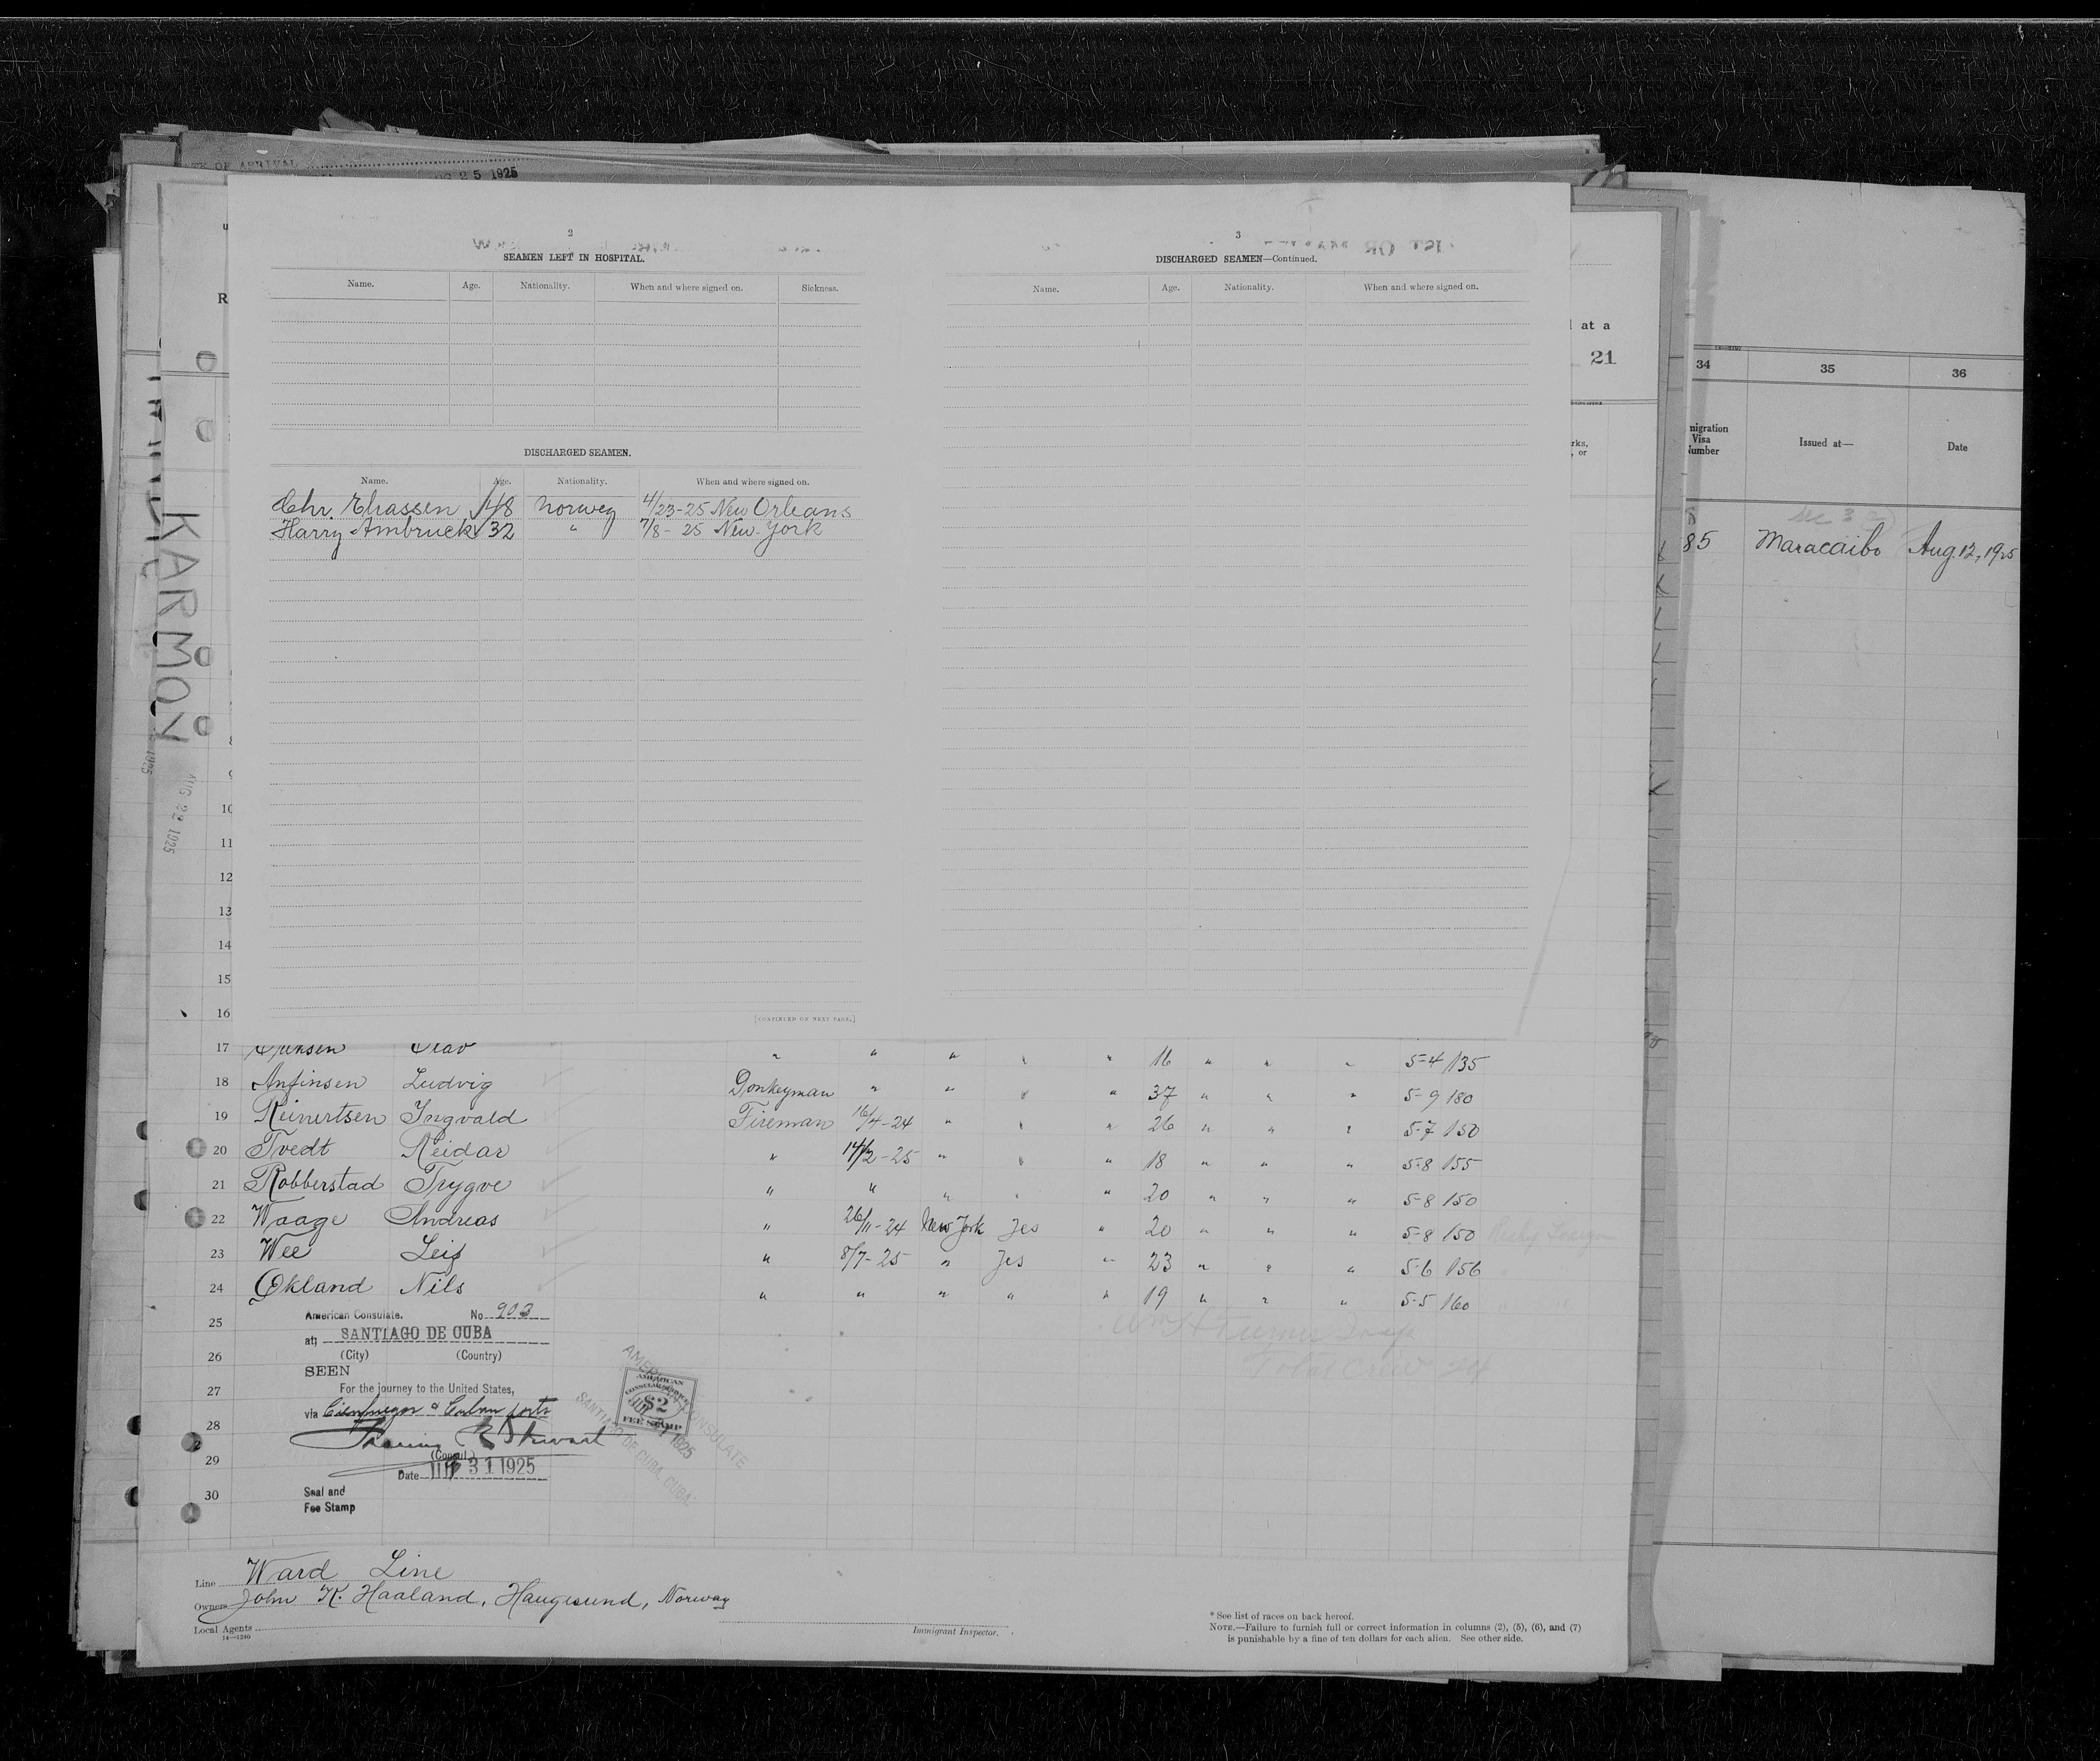 TE OF ARRIVAL
25 1925
2
SEAMEN LEFT IN HOSPITAL.
Name. Age. Nationality. When and where signed on. Sickness.
DISCHARGED SEAMEN.
Name. Age. Nationality. When and where signed on.
Chr. Eliassen 48 Norweg 4/23-25 New Orleans
Harry Ambruck 32 " 7/8-25 New-York
[CONTINUED ON NEXT PAGE.]
3
DISCHARGED SEAMEN—Continued.
Name. Age. Nationality. When and where signed on.
at a
21
rks,
, or
34 35 36
migration
Visa
Number
Issued at—
Date
sec 3
85 Maracaibo Aug. 12, 1925
KARMOY
AUG 22 1925
1925
R
8
9
10
11
12
13
14
15
16
17 " " " " " 16 " " " 5-4 135
18 Anfinsen Ludvig Donkeyman " " " " 37 " " " 5-9 180
19 Reinertsen Ingvald Fireman 16/4-24 " " " 26 " " " 5-7 150
20 Tvedt Reidar " 14/2-25 " " " 18 " " " 5-8 155
21 Robberstad Trygve " " " " " 20 " " " 5-8 150
22 Waage Andreas " 26/11-24 New York Yes " 20 " " " 5-8 150
23 Wee Leif " 8/7-25 " Yes " 23 " " " 5-6 156
24 Økland Nils " " " " " 19 " " " 5-5 160
25
26
27
28
29
30
American Consulate. No. 903
at SANTIAGO DE CUBA
(City) (Country)
SEEN
For the journey to the United States,
via Cienfuegos & Cuban ports
Stewart
(Consul.)
Date 31 1925
Seal and
Fee Stamp
AMERICAN CONSULATE
SANTIAGO DE CUBA, CUBA
1925
AMERICAN
CONSULAR SERVICE
$2
FEE STAMP
Total Crew 24
Line Ward Line
Owners John K. Haaland, Haugesund, Norway
Local Agents
14—1240
Immigrant Inspector.
* See list of races on back hereof.
NOTE.—Failure to furnish full or correct information in columns (2), (5), (6), and (7)
is punishable by a fine of ten dollars for each alien. See other side.